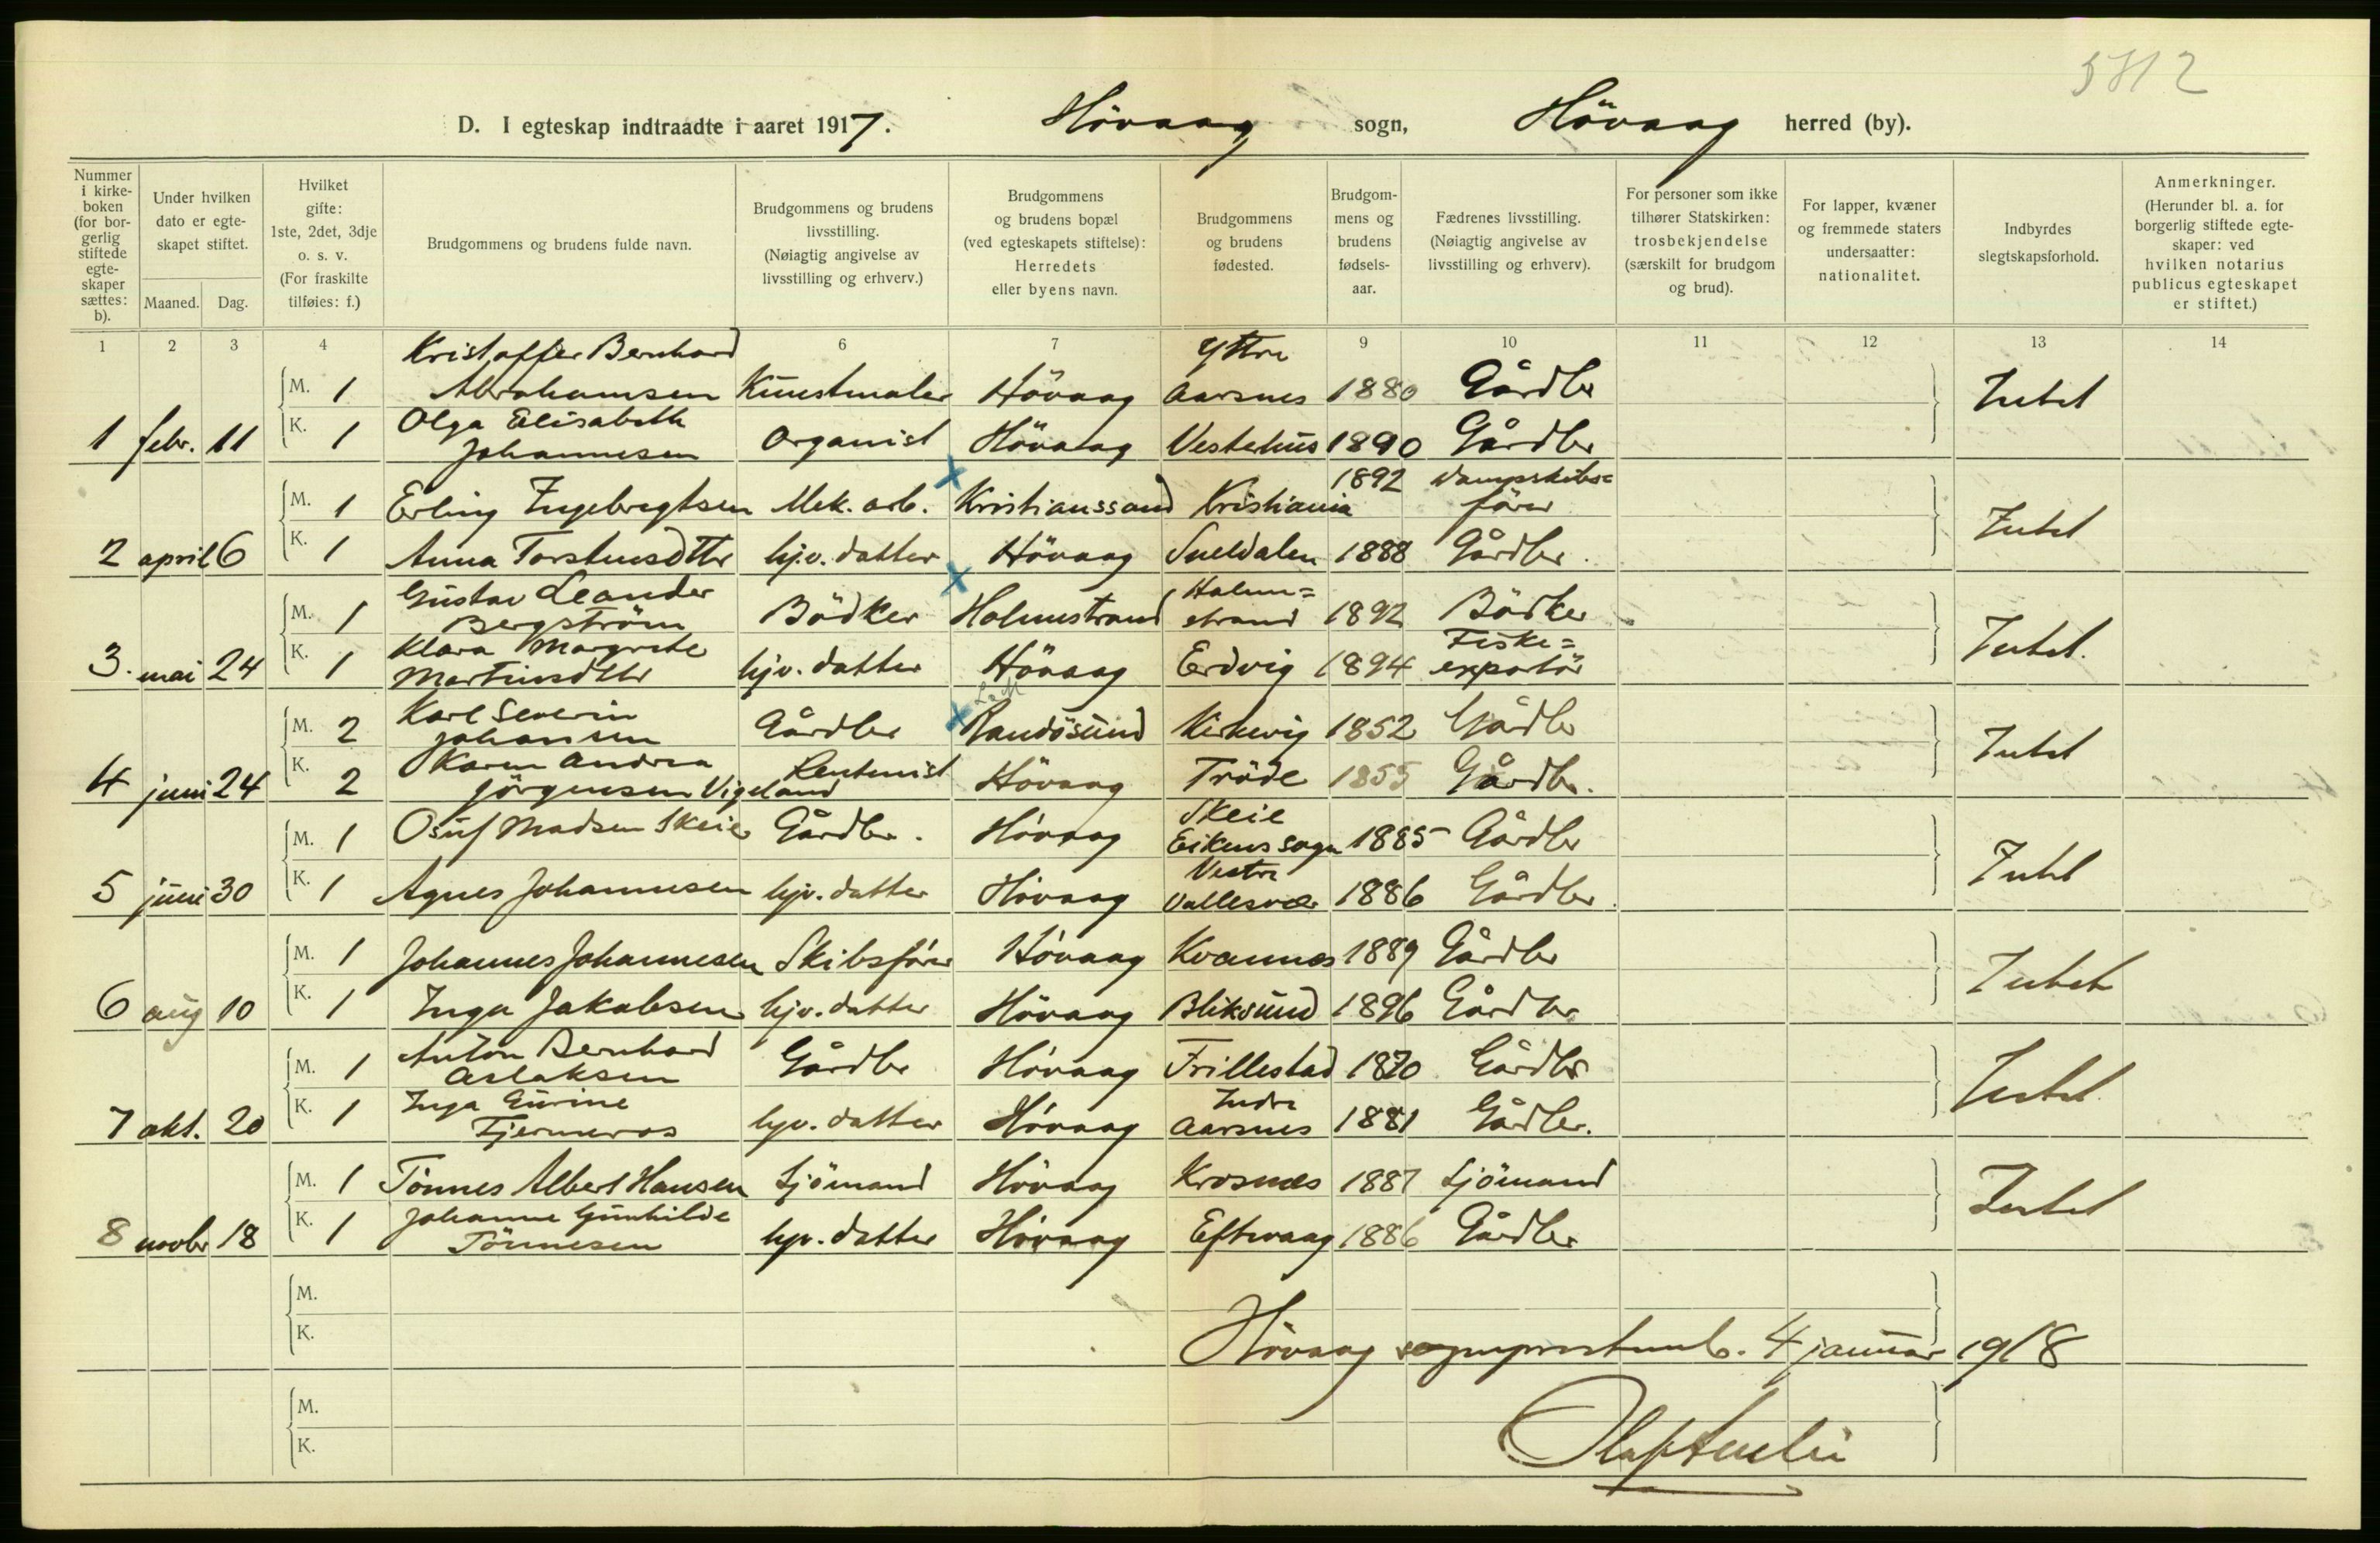 5812
D. I egteskap indtraadte i aaret 1917. Hövaag sogn, Hövaag herred (by).
Nummer i kirkeboken (for borgerlig stiftede egteskaper sættes: b).
Under hvilken dato er egteskapet stiftet.
Maaned. Dag.
Hvilket gifte: 1ste, 2det, 3dje o. s. v. (For fraskilte tilføies: f.)
Brudgommens og brudens fulde navn.
Brudgommens og brudens livsstilling. (Nøiagtig angivelse av livsstilling og erhverv.)
Brudgommens og brudens bopæl (ved egteskapets stiftelse): Herredets eller byens navn.
Brudgommens og brudens fødested.
Brudgommens og brudens fødselsaar.
Fædrenes livsstilling. (Nøiagtig angivelse av livsstilling og erhverv).
For personer som ikke tilhører Statskirken: trosbekjendelse (særskilt for brudgom og brud).
For lapper, kvæner og fremmede staters undersaatter: nationalitet.
Indbyrdes slegtskapsforhold.
Anmerkninger. (Herunder bl. a. for borgerlig stiftede egteskaper: ved hvilken notarius publicus egteskapet er stiftet.)
1 2 3 4 6 7 9 10 11 12 13 14
M. 1 Kristoffer Bernhard Abrahamsen Kunstmaler Hövaag Yttre Aarsnes 1880 Gårdbr Intet
1 febr. 11 K. 1 Olga Elisabeth Johannesen Organist Hövaag Vesterhus 1890 Gårdbr
M. 1 Erling Ingebregtsen Mek. arb. Kristianssand Kristiania 1892 Dampskibsförer Intet
2 april 6 K. 1 Anna Torstensdttr hjv. datter Hövaag Sneldalen 1888 Gårdbr.
M. 1 Gustav Leander Bergström Bödker Holmestrand Holmestrand 1892 Bödker Intet.
3. mai 24 K. 1 Klara Margrete Martinsdttr hjv. datter Hövaag Erdvig 1894 Fiskeexportör
M. 2 Karl Severin Johansen Gårdbr Randösund Kirkevig 1852 Gårdbr Intet
4 juni 24 K. 2 Karen Andrea Jörgensen Vigeland Rentenist Hövaag Tröde 1855 Gårdbr.
M. 1 Osuf Madsen Skeie Gårdbr. Hövaag Skeie Eikens sogn 1885 Gårdbr Intet
5 juni 30 K. 1 Agnes Johannesen hjv. datter Hövaag Vestre Vallesvær 1886 Gårdbr
M. 1 Johannes Johannesen Skibsförer Hövaag Kvannes 1889 Gårdbr Intet
6 aug 10 K. 1 Inga Jakobsen hjv. datter Hövaag Bliksund 1896 Gårdbr
M. 1 Anton Bernhard Aslaksen Gårdbr Hövaag Frillestad 1870 Gårdbr Intet
7 okt. 20 K. 1 Inga Gurine Tjerneros hjv. datter Hövaag Indre Aarsnes 1881 Gårdbr.
M. 1 Tönnes Albert Hansen Sjömand Hövaag Krosnes 1887 Sjömand Intet
8 novbr 18 K. 1 Johanne Gunhilde Tönnesen hjv. datter Hövaag Eftevaag 1886 Gårdbr
M.
K.
Hövaag sogneprestemb. 4 januar 1918
M.
K.